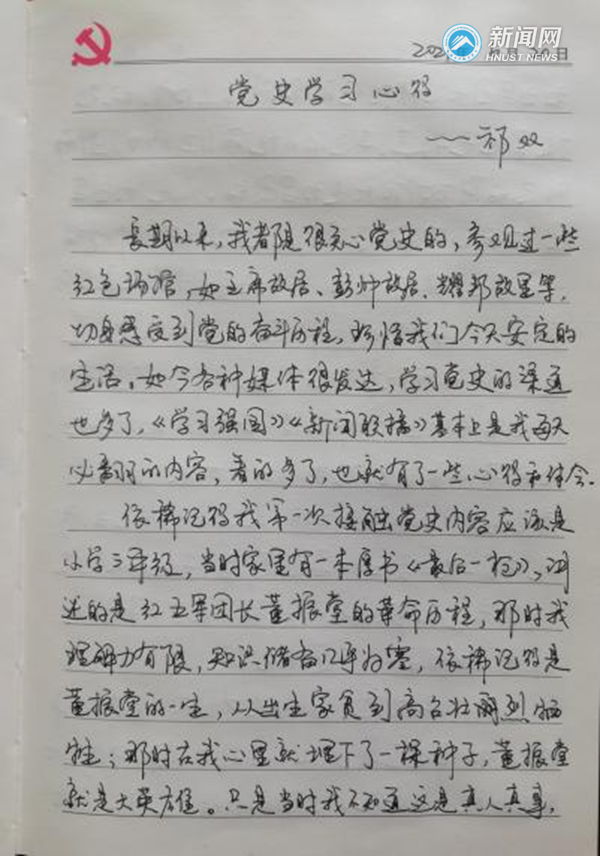 新闻网
HNUST NEWS
202 月 20日
党史学习心得
——祁双
长期以来,我都是很关心党史的,参观过一些
红色场馆,如主席故居、彭帅故居、耀邦故里等,
切身感受到党的奋斗历程,珍惜我们今天安定的
生活,如今各种媒体很发达,学习党史的渠道
也多了,《学习强国》《新闻联播》基本上是我每天
必翻的内容,看的多了,也就有了一些心得和体会.
依稀记得我第一次接触党史内容应该是
小学三年级,当时家里有一本厚书《最后一枪》,讲
述的是红五军团长董振堂的革命历程,那时我
理解力有限,知识储备几乎为零,依稀记得是
董振堂的一生,从出生家贫到高台壮烈牺
牲;那时在我心里就埋下了一棵种子,董振堂
就是大英雄。只是当时我不知道这是真人真事,